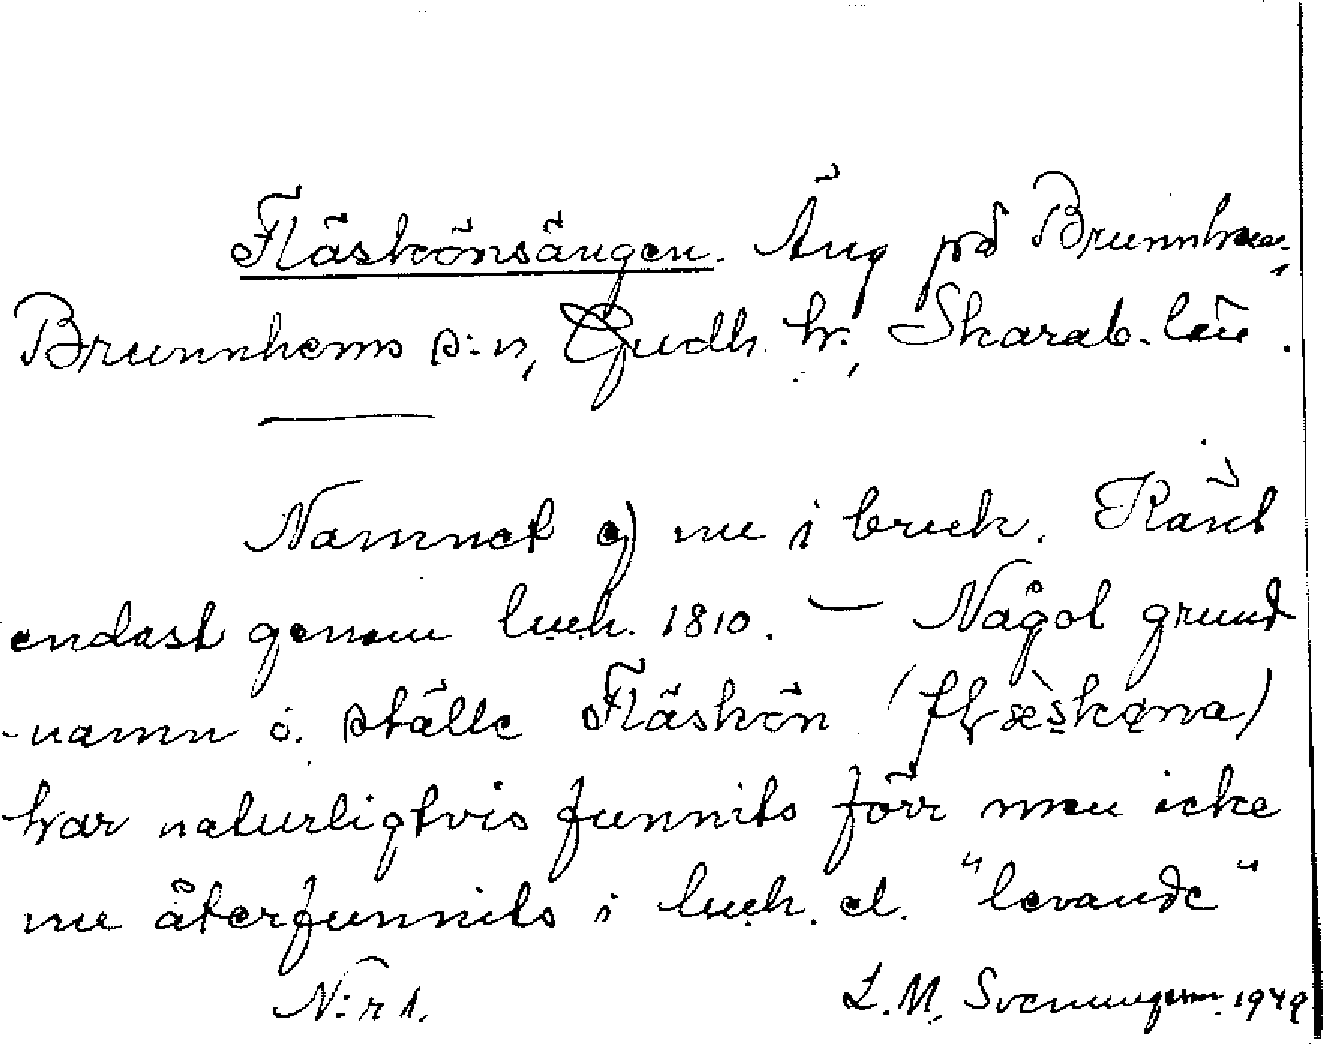 Fläskönsängen. Äng på Brunnhem,
Brunnhems s:n, Gudh. hr., Skarab. län.
Namnet ej nu i bruk. Känt
endast genom lmh. 1810. — Något grund
-namn å ställe Fläskön (flæ̀skøna)
har naturligtvis funnits förr men icke
nu återfunnits i lmh. el. "levande"
N:r 1. L. M. Svenungsson 1949